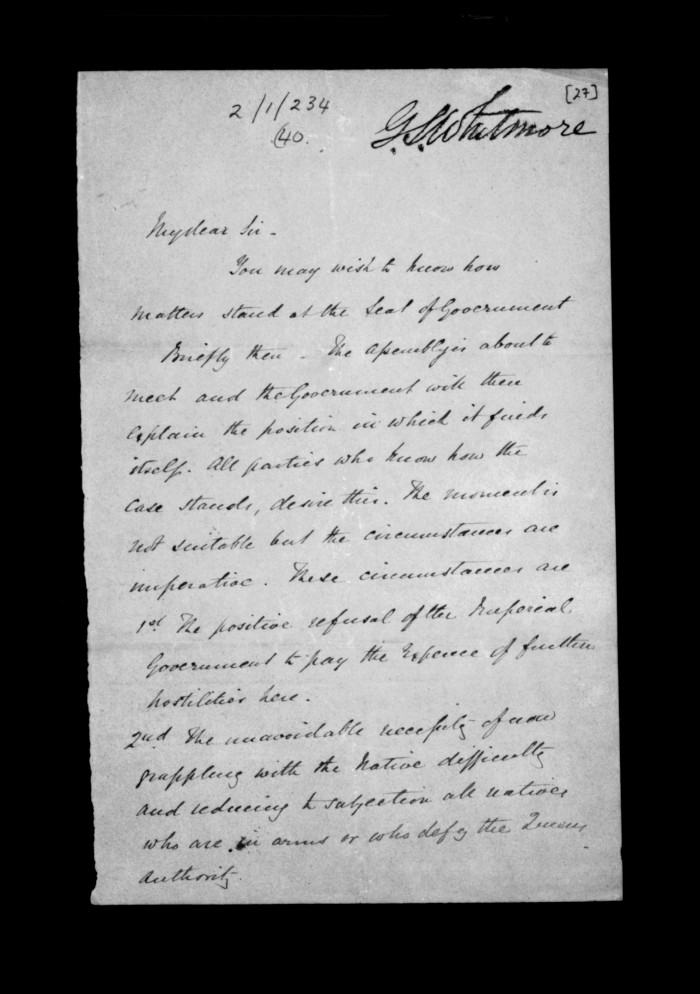 [27]
2/1/234
40.
G.S. Whitmore
My dear Sir -
You may wish to know how
matters stand at the Seat of Government
Briefly then - The Assembly is about to
meet and the Government will then
explain the position in which it finds
itself. All parties who know how the
case stands, desire this. The moment is
not suitable but the circumstances are
imperative. These circumstances are
1st The positive refusal of the Imperial
Government to pay the Expence of further
hostilities here.
2nd The unavoidable necessity of now
grappling with the Native difficulty
and reducing to subjection all natives
who are in arms or who defy the Queens
authority.